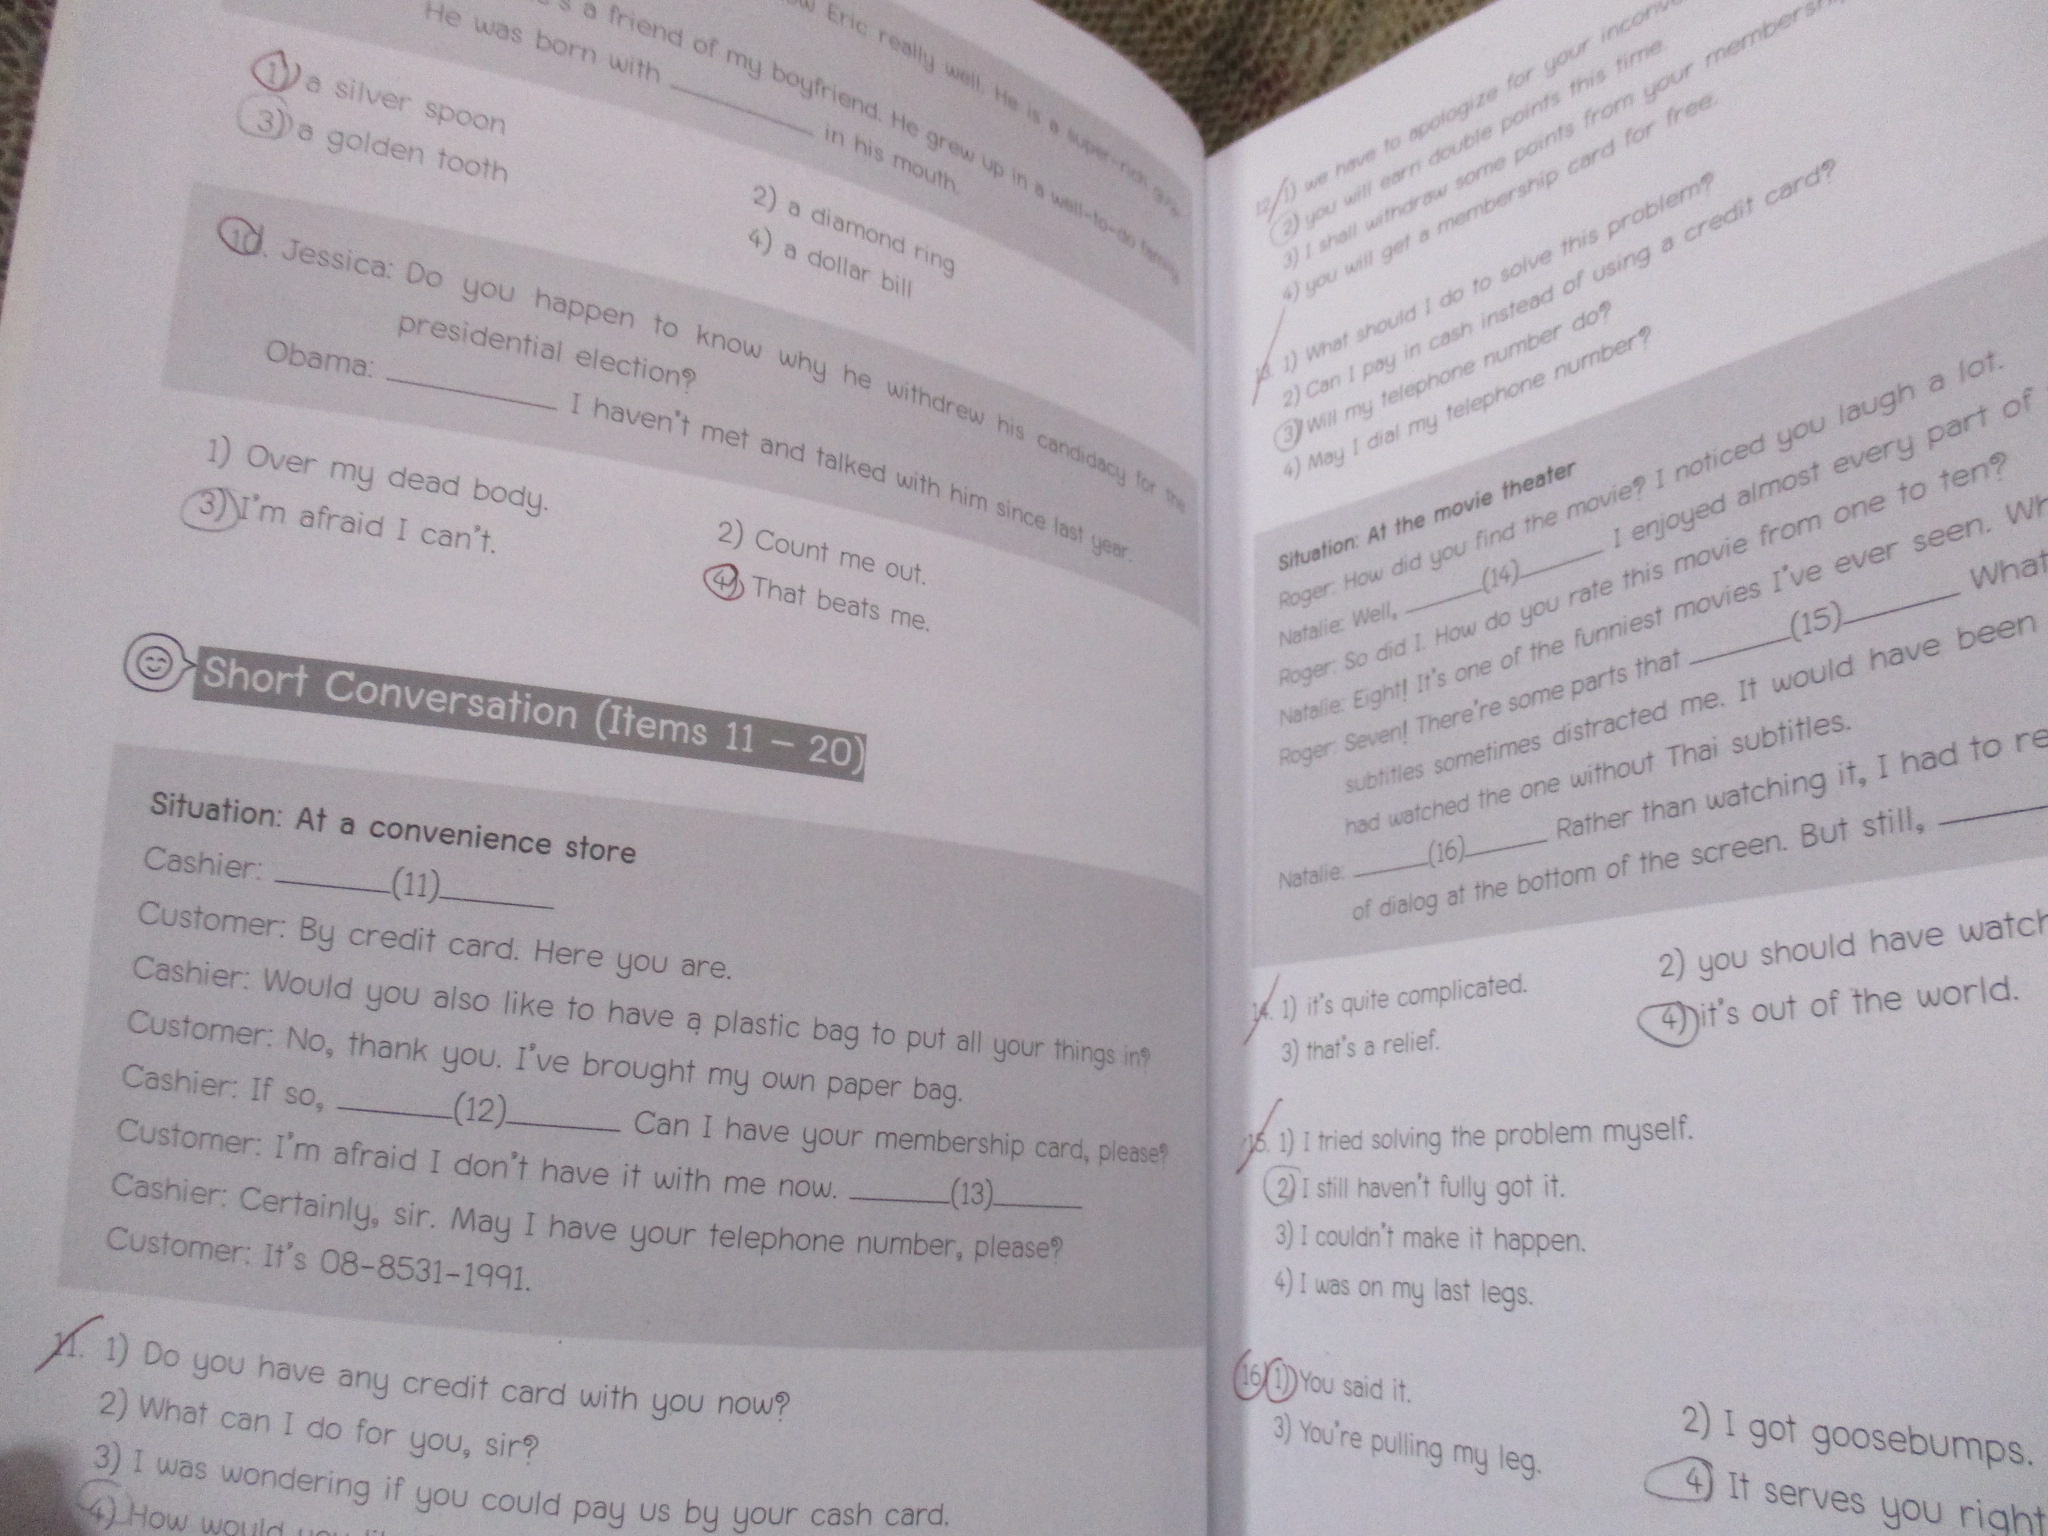 Eric really well. He is a super-rich guy.
a friend of my boyfriend. He grew up in a well-to-do family.
He was born with ________ in his mouth.
1) a silver spoon
2) a diamond ring
3) a golden tooth
4) a dollar bill
10. Jessica: Do you happen to know why he withdrew his candidacy for the
presidential election?
Obama: ________ I haven't met and talked with him since last year.
1) Over my dead body.
2) Count me out.
3) I'm afraid I can't.
4) That beats me.
Short Conversation (Items 11 – 20)
Situation: At a convenience store
Cashier: ______(11)______
Customer: By credit card. Here you are.
Cashier: Would you also like to have a plastic bag to put all your things in?
Customer: No, thank you. I've brought my own paper bag.
Cashier: If so, ______(12)______ Can I have your membership card, please?
Customer: I'm afraid I don't have it with me now. ______(13)______
Cashier: Certainly, sir. May I have your telephone number, please?
Customer: It's 08-8531-1991.
11. 1) Do you have any credit card with you now?
2) What can I do for you, sir?
3) I was wondering if you could pay us by your cash card.
4) How would you
12. 1) we have to apologize for your
2) you will earn double points this time.
3) I shall withdraw some points from your
4) you will get a membership card for free.
13. 1) What should I do to solve this problem?
2) Can I pay in cash instead of using a credit card?
3) Will my telephone number do?
4) May I dial my telephone number?
Situation: At the movie theater
Roger: How did you find the movie? I noticed you laugh a lot.
Natalie: Well, ______(14)______ I enjoyed almost every part of
Roger: So did I. How do you rate this movie from one to ten?
Natalie: Eight! It's one of the funniest movies I've ever seen.
Roger: Seven! There're some parts that ______(15)______ What
subtitles sometimes distracted me. It would have been
had watched the one without Thai subtitles.
Natalie: ______(16)______ Rather than watching it, I had to
of dialog at the bottom of the screen. But still, ______
14. 1) it's quite complicated.
2) you should have
3) that's a relief.
4) it's out of the world.
15. 1) I tried solving the problem myself.
2) I still haven't fully got it.
3) I couldn't make it happen.
4) I was on my last legs.
16. 1) You said it.
2) I got goosebumps.
3) You're pulling my leg.
4) It serves you right